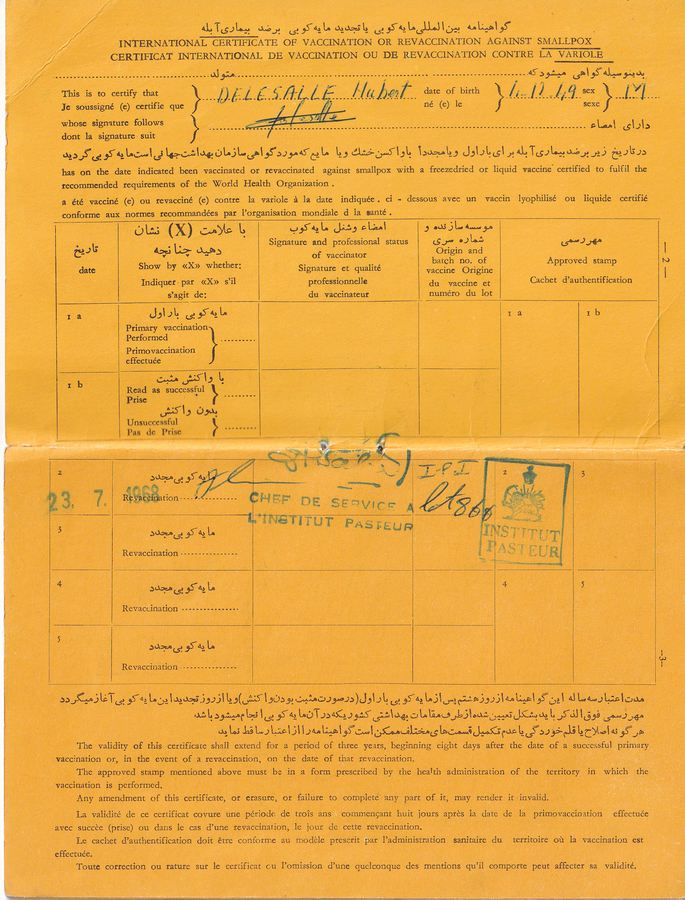 گواهینامه بین‌المللی مایه کوبی یا تجدید مایه کوبی برضد بیماری آبله
INTERNATIONAL CERTIFICATE OF VACCINATION OR REVACCINATION AGAINST SMALLPOX
CERTIFICAT INTERNATIONAL DE VACCINATION OU DE REVACCINATION CONTRE LA VARIOLE
بدینوسیله گواهی میشود که متولد
This is to certify that DELESALLE Hubert date of birth 4.12.49 sex M
Je soussigné (e) certifie que né (e) le sexe
whose signature follows دارای امضاء
dont la signature suit
در تاریخ زیر برضد بیماری آبله برای بار اول و یا مجدداً با واکسن خشک و یا مایع که مورد گواهی سازمان بهداشت جهانی است مایه کوبی گردید
has on the date indicated been vaccinated or revaccinated against smallpox with a freezedried or liquid vaccine certified to fulfil the
recommended requirements of the World Health Organization .
a été vacciné (e) ou revacciné (e) contre la variole à la date indiquée . ci - dessous avec un vaccin lyophilisé ou liquide certifié
conforme aux normes recommandées par l'organisation mondiale d la santé .
تاریخ
date
با علامت (X) نشان
دهید چنانچه
Show by «X» whether:
Indiquer par «X» s'il
s'agit de:
امضاء وشغل مایه کوب
Signature and professional status
of vaccinator
Signature et qualité
professionnelle
du vaccinateur
موسسه سازنده و
شماره سری
Origin and
batch no. of
vaccine Origine
du vaccin et
numéro du lot
مهر رسمی
Approved stamp
Cachet d'authentification
— 2 —
1 a
مایه کوبی بار اول
Primary vaccination
Performed
Primovaccination
effectuée
1 a
1 b
1 b
با واکنش مثبت
Read as successful
Prise
بدون واکنش
Unsuccessful
Pas de Prise
2
مایه کوبی مجدد
Revaccination
23. 7. 1968
CHEF DE SERVICE A
L'INSTITUT PASTEUR
I.P.I
lot 866
2
INSTITUT
PASTEUR
3
3
مایه کوبی مجدد
Revaccination
4
مایه کوبی مجدد
Revaccination
4
5
5
مایه کوبی مجدد
Revaccination
-3-
مدت اعتبار سه ساله این گواهینامه از روز هشتم پس از مایه کوبی بار اول (در صورت مثبت بودن واکنش) و یا از روز تجدید این مایه کوبی آغاز میگردد
مهر رسمی فوق الذکر باید بشکل تعیین شده از طرف مقامات بهداشتی کشوریکه در آن مایه کوبی انجام میشود باشد.
هر گونه اصلاح یا قلم خوردگی یا عدم تکمیل قسمت‌های مختلف ممکن است گواهینامه را از اعتبار ساقط نماید
The validity of this certificate shall extend for a period of three years, beginning eight days after the date of a successful primary
vaccination or, in the event of a revaccination, on the date of that revaccination.
The approved stamp mentioned above must be in a form prescribed by the health administration of the territory in which the
vaccination is performed.
Any amendment of this certificate, or erasure, or failure to complete any part of it, may render it invalid.
La validité de ce certificat covure une période de trois ans commençant huit jours après la date de la primovaccination effectuée
avec succèe (prise) ou dans le cas d'une revaccination, le jour de cette revaccination.
Le cachet d'authentification doit être conforme au modèle prescrit par l'administration sanitaire du territoire où la vaccination est
effectuée.
Toute correction ou rature sur le certificat ou l'omission d'une quelconque des mentions qu'il comporte peut affecter sa validité.